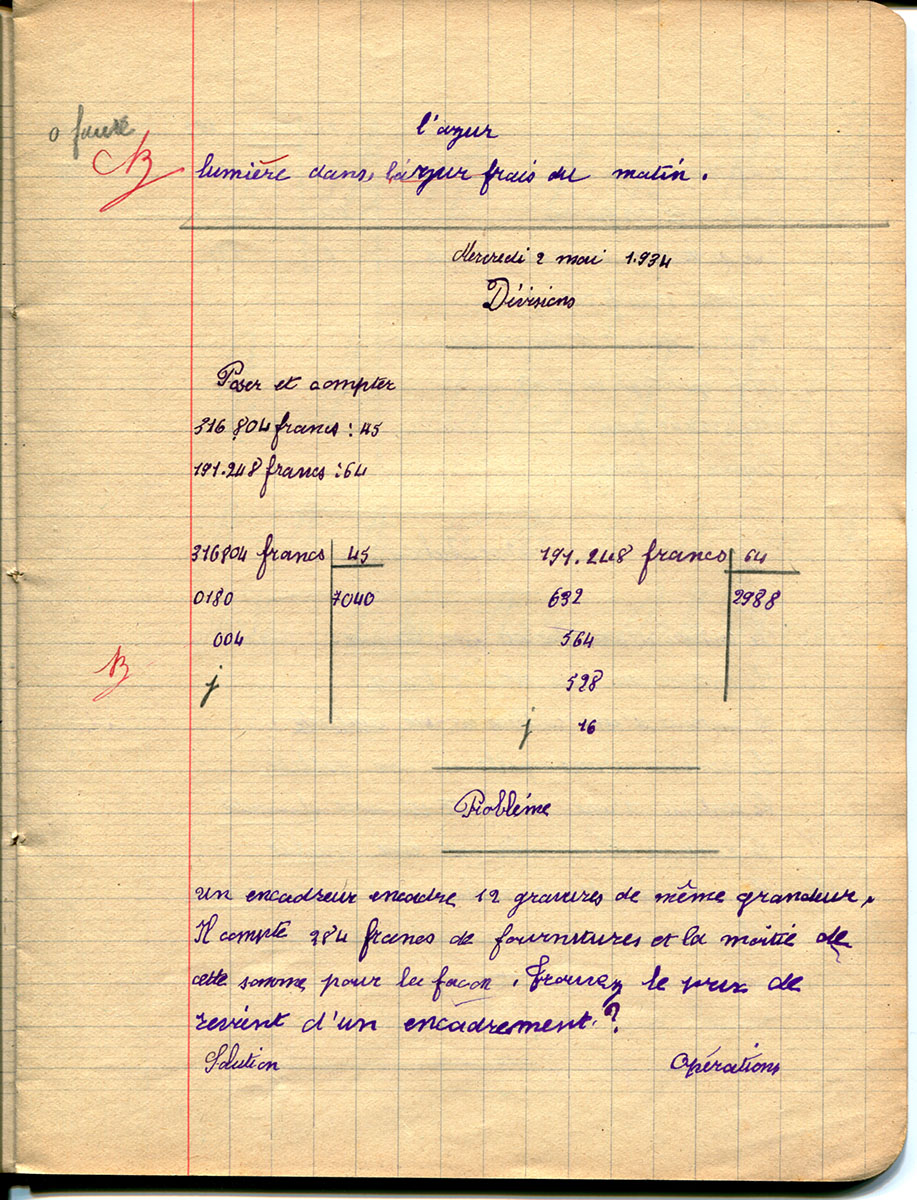 0 faute
l'azur
B
lumière dans l'azur frais du matin.
Mercredi 2 mai 1.934
Divisions
Poser et compter
316.804 francs : 45
191.248 francs : 64
316804 francs 45
191.248 francs 64
0180 7040
632 2988
004
564
B
j
528
j 16
Problème
Un encadreur encadre 12 gravures de même grandeur.
Il compte 384 francs de fournitures et la moitié de
cette somme pour la façon. Trouvez le prix de
revint d'un encadrement.?
Solution Opérations